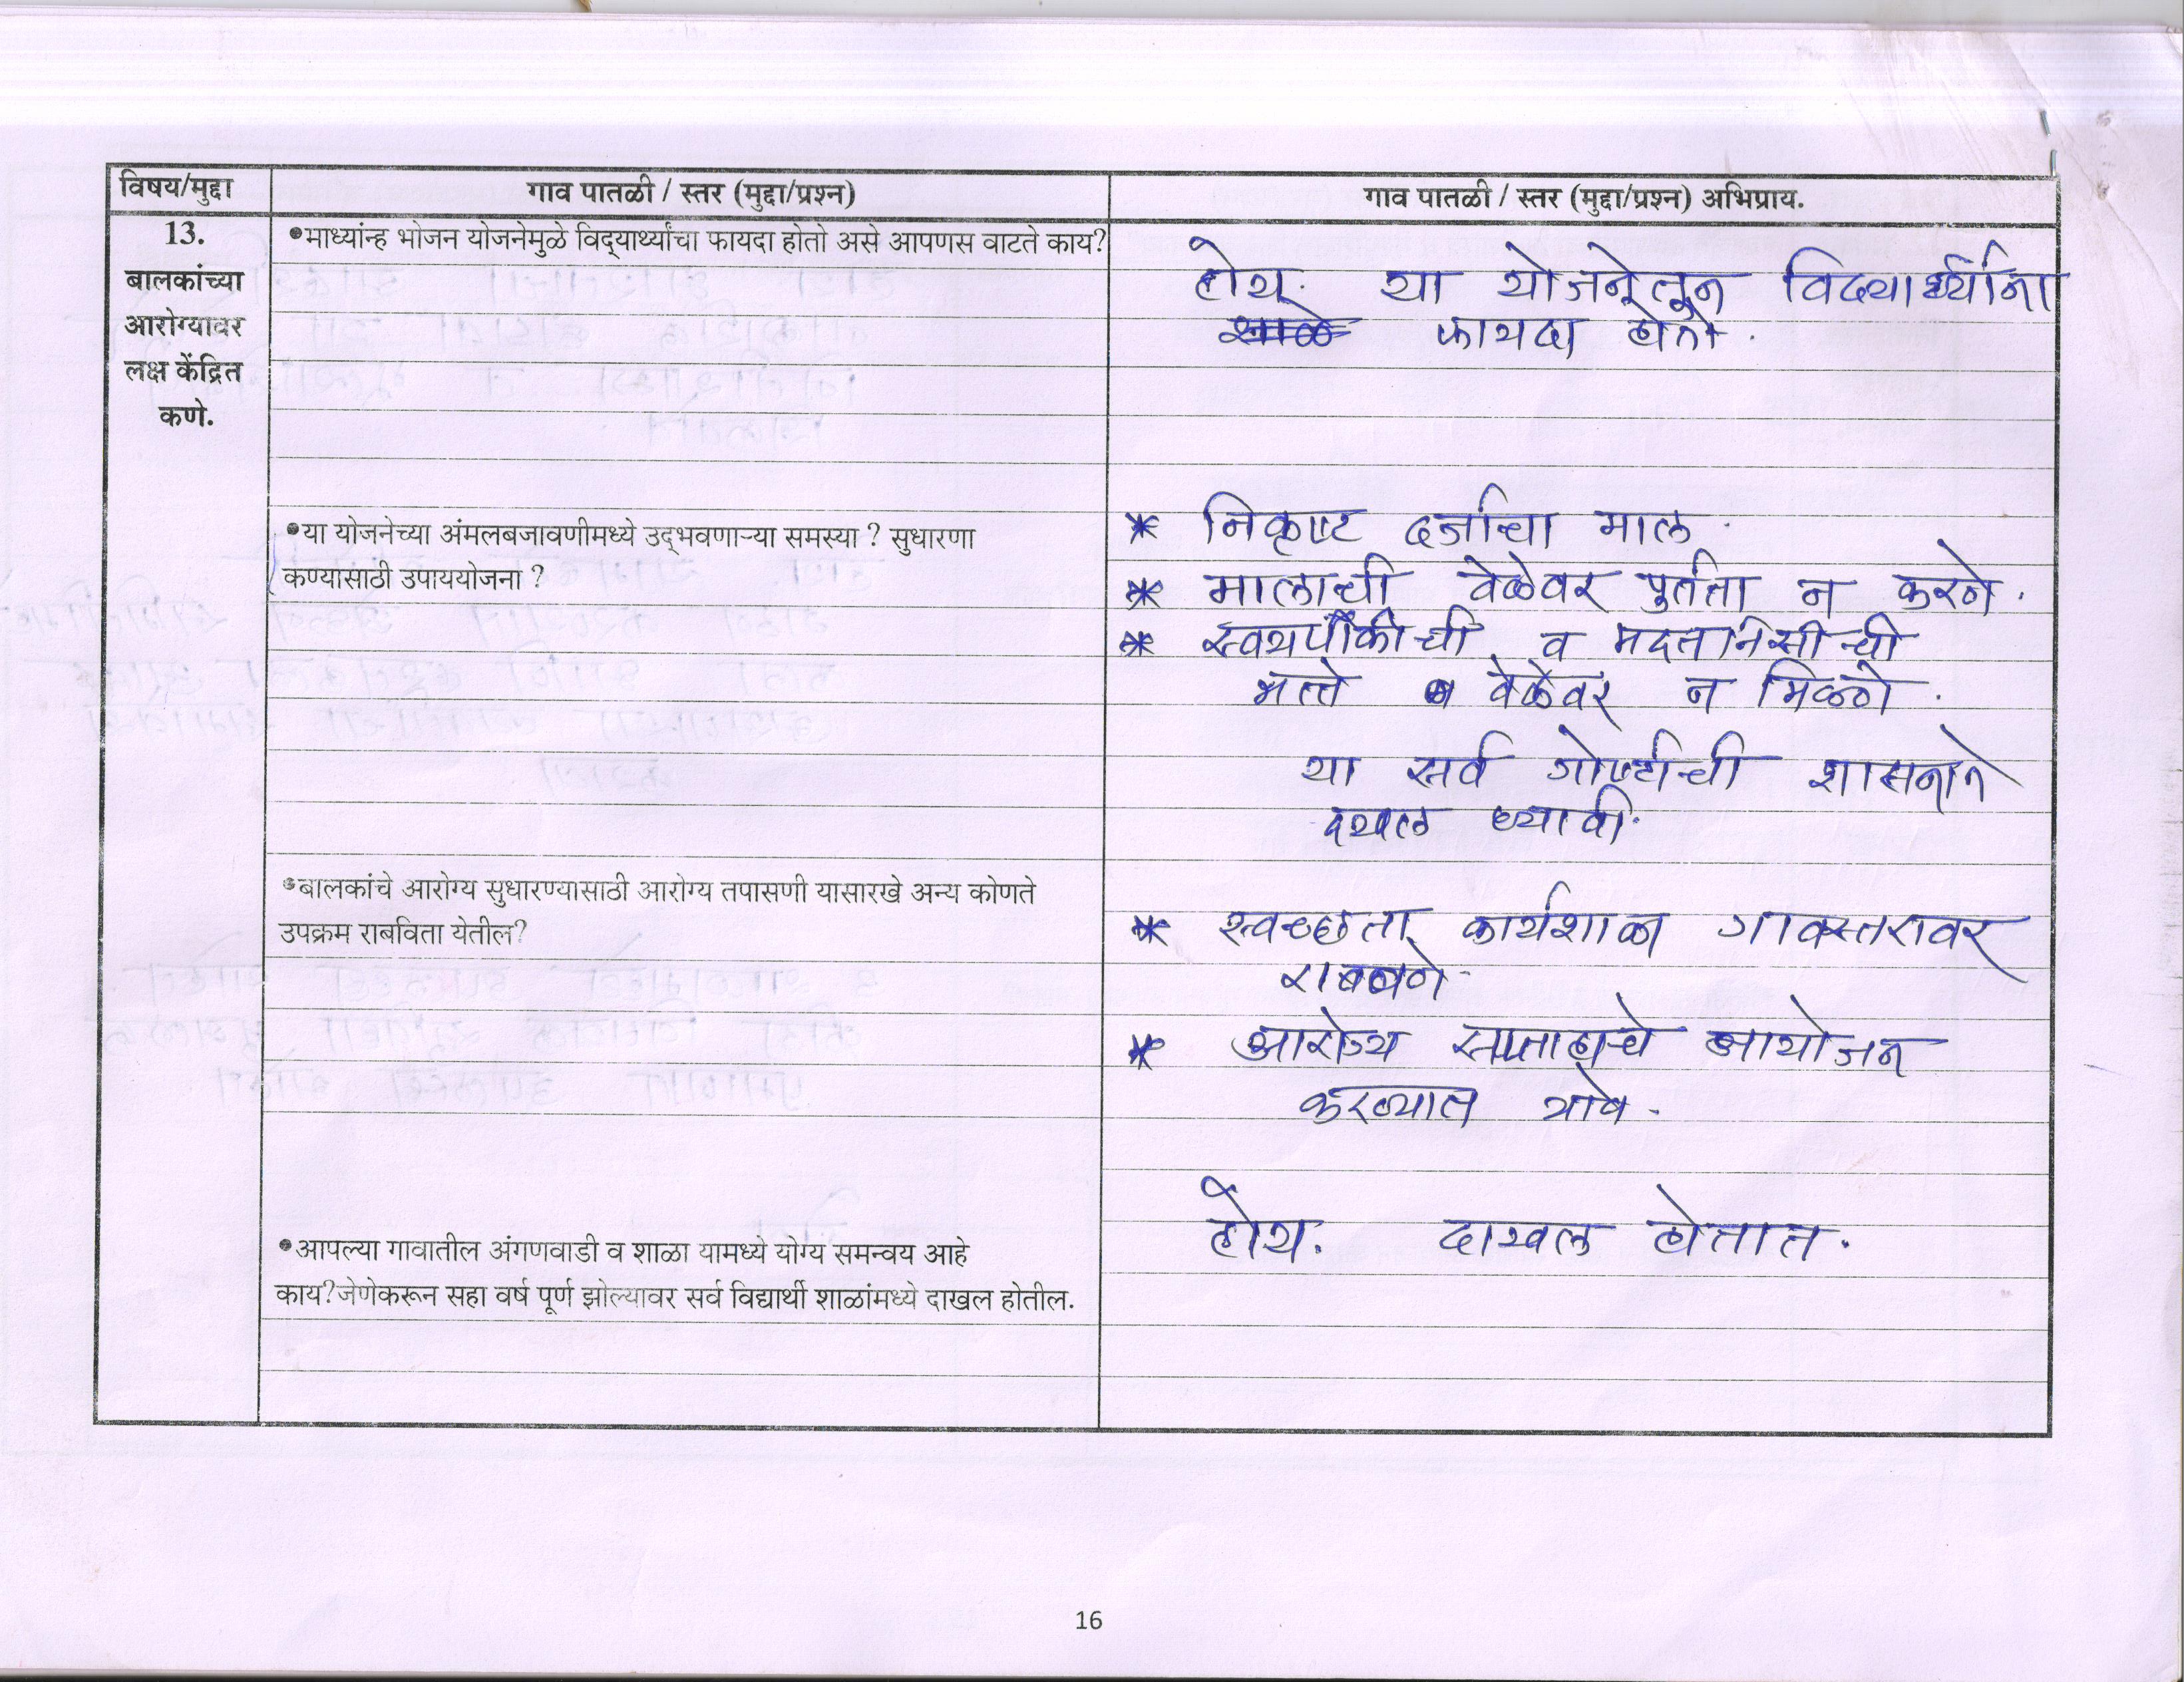 विषय/मुद्दा
गाव पातळी / स्तर (मुद्दा/प्रश्न)
गाव पातळी / स्तर (मुद्दा/प्रश्न) अभिप्राय.
13.
बालकांच्या
आरोग्यावर
लक्ष केंद्रित
कणे.
•माध्यांन्ह भोजन योजनेमुळे विद्यार्थ्यांचा फायदा होतो असे आपणस वाटते काय?
होय. या योजनेतून विद्यार्थ्यांना
फायदा होतो.
•या योजनेच्या अंमलबजावणीमध्ये उद्भवणाऱ्या समस्या ? सुधारणा
कण्यासाठी उपाययोजना ?
* निकृष्ट दर्जाचा माल.
* मालाची वेळेवर पुर्तता न करणे.
* स्वयपाँकीची व मदतनिसीची
भत्ते वेळेवर न मिळणे.
या सर्व गोष्टीची शासनाने
दखल घ्यावी.
•बालकांचे आरोग्य सुधारण्यासाठी आरोग्य तपासणी यासारखे अन्य कोणते
उपक्रम राबविता येतील?
* स्वच्छता कार्यशाळा गावस्तरावर
राबवणे.
* आरोग्य सप्ताहाचे आयोजन
करण्यात यावे.
•आपल्या गावातील अंगणवाडी व शाळा यामध्ये योग्य समन्वय आहे
काय?जेणेकरून सहा वर्ष पूर्ण झोल्यावर सर्व विद्यार्थी शाळांमध्ये दाखल होतील.
होय. दाखल होतात.
16